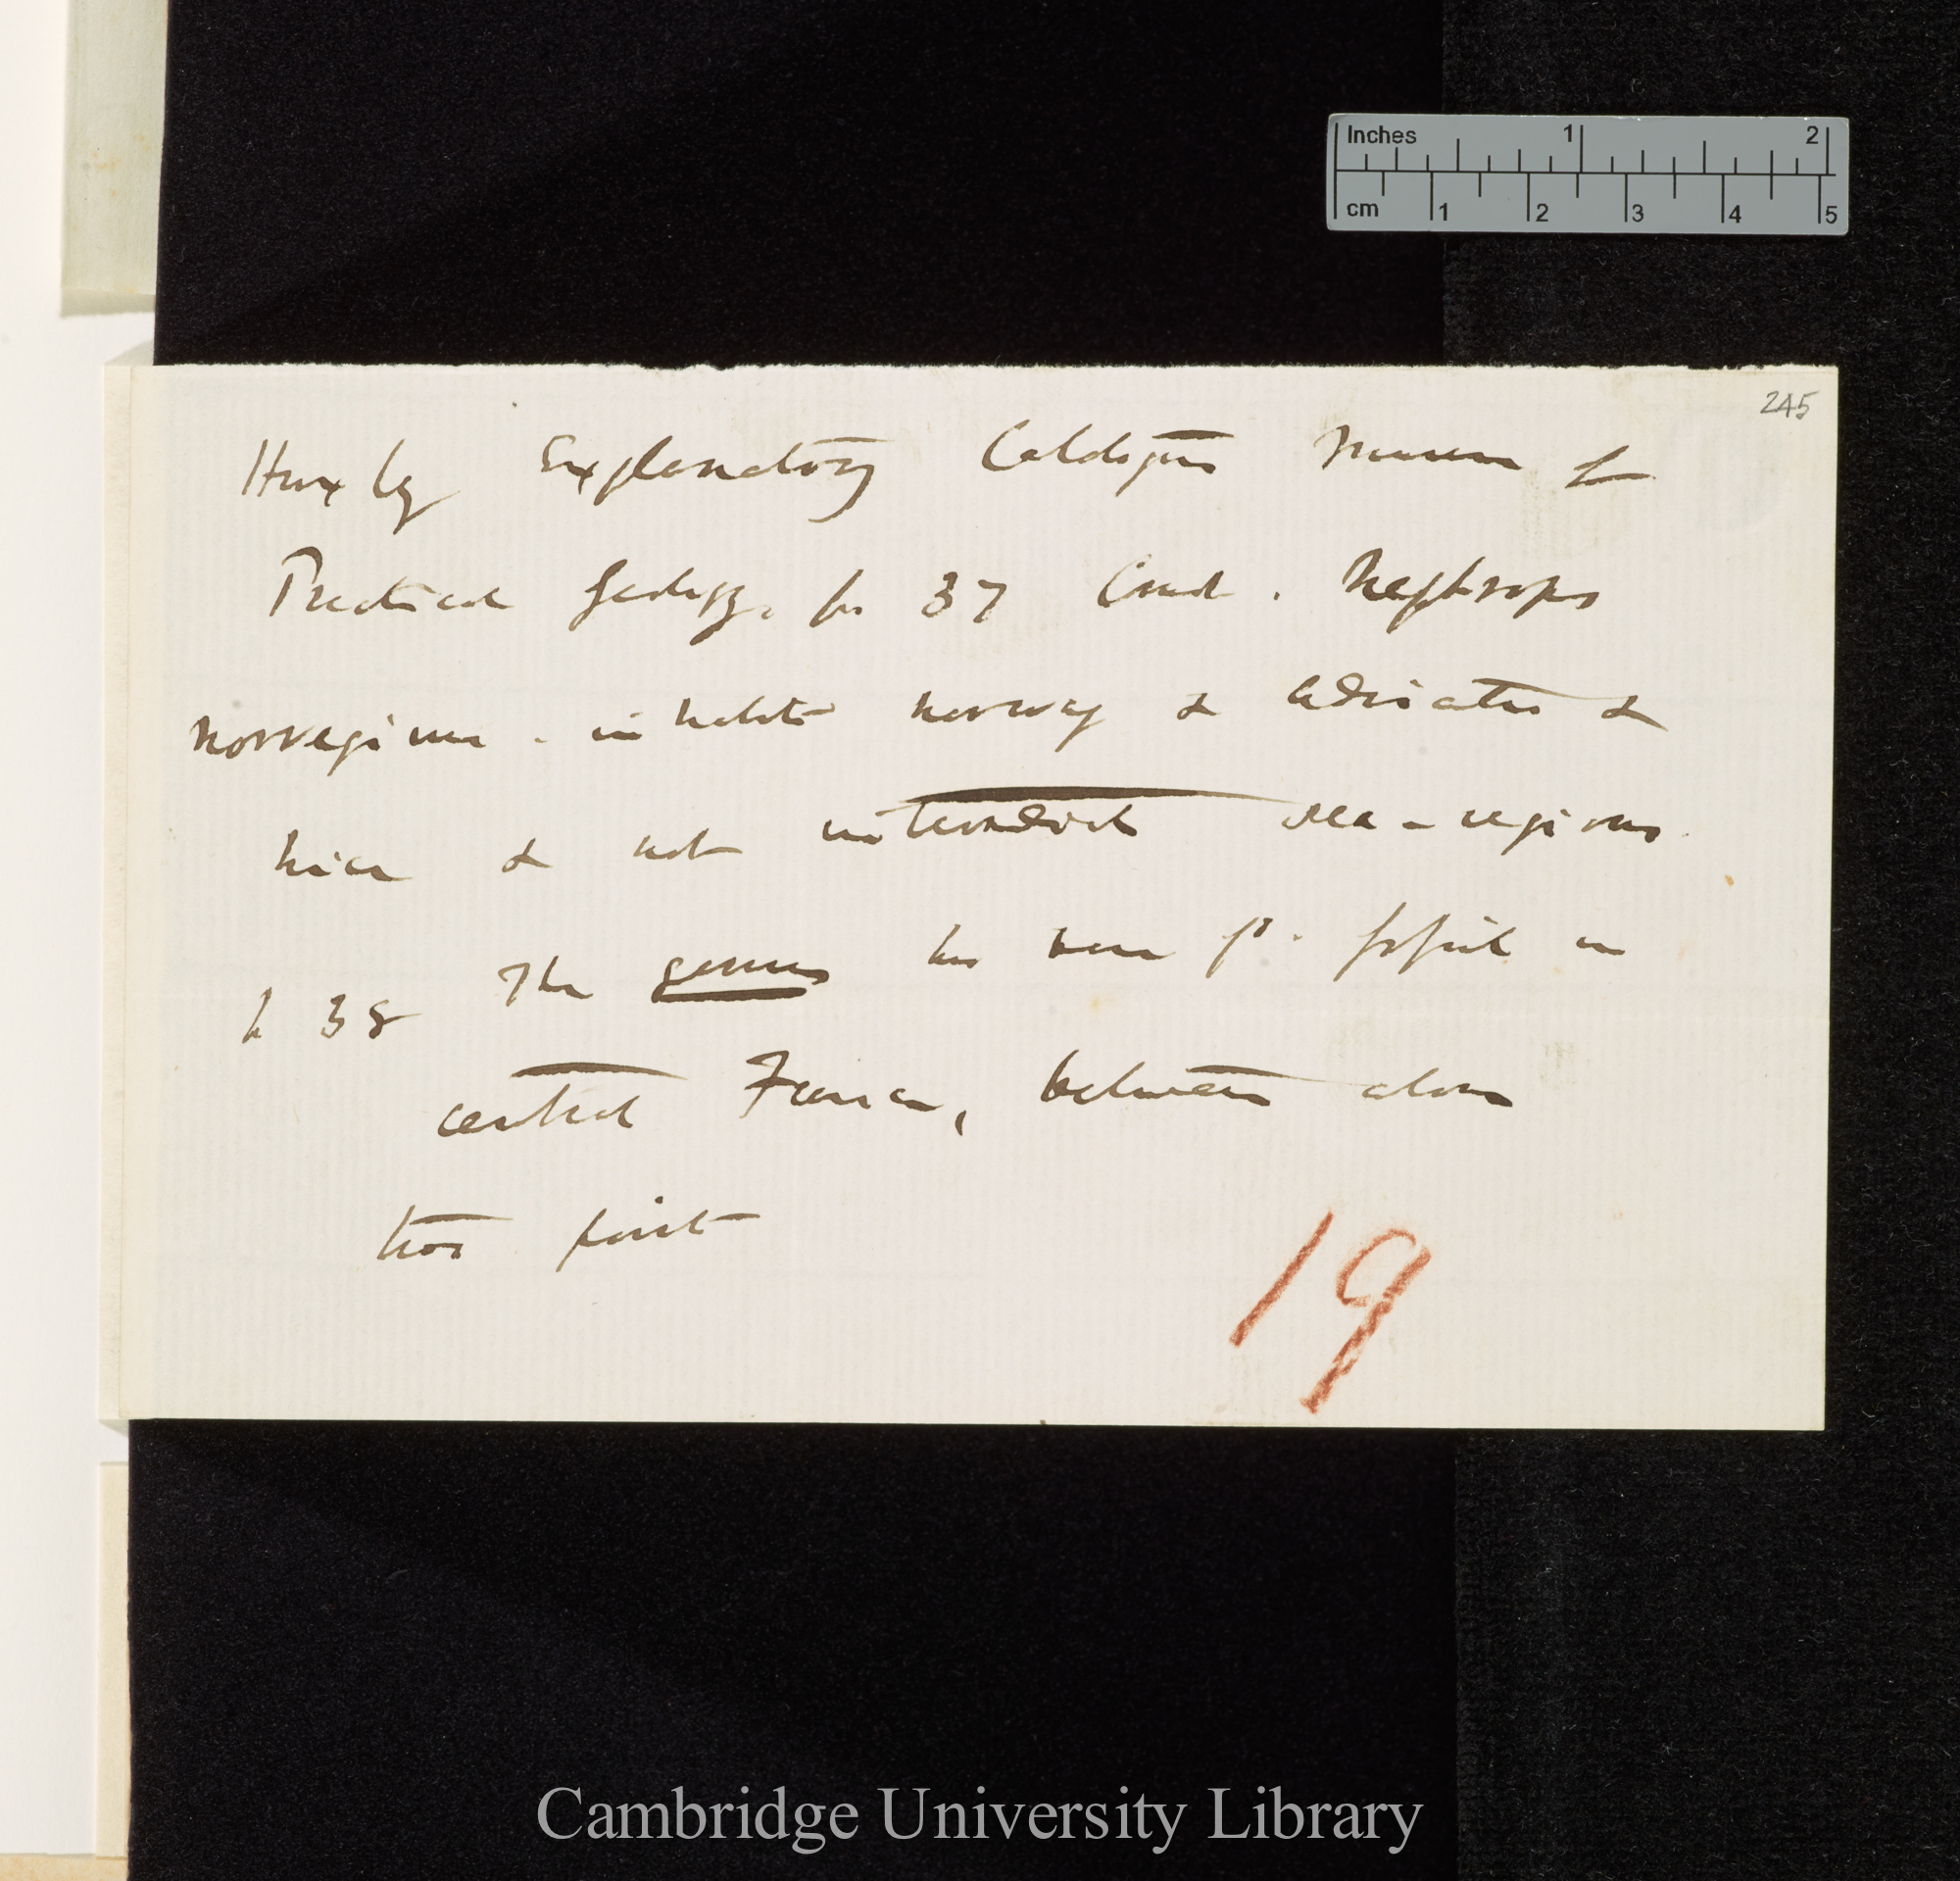 Inches 1 2
cm 1 2 3 4 5
245
Huxley Explanatory Catalogue Museum of
Practical Geology. p 37 Crust. Nephrops
Norvegicus. inhabits Norway & Adriatic &
Nice & not intermediate sea-regions
p 38 The genus has been fd. fossil in
central France, between above
two points
19
Cambridge University Library